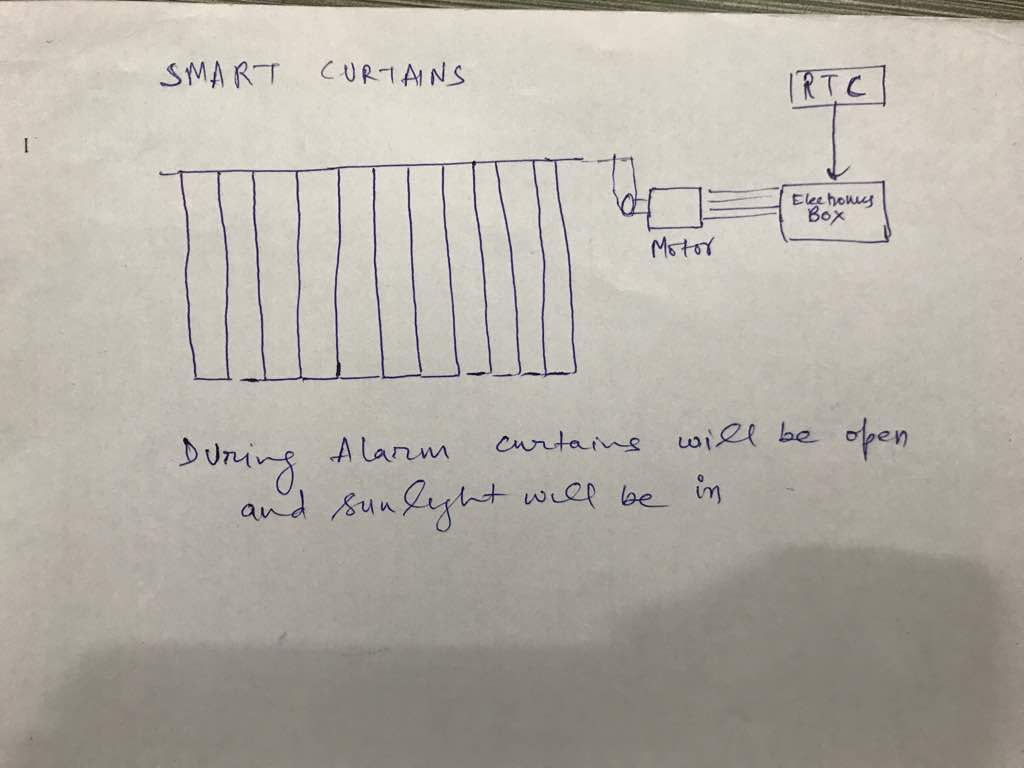 SMART CURTAINS
RTC
I
Electronics
Box
Motor
During Alarm curtains will be open
and sunlight will be in